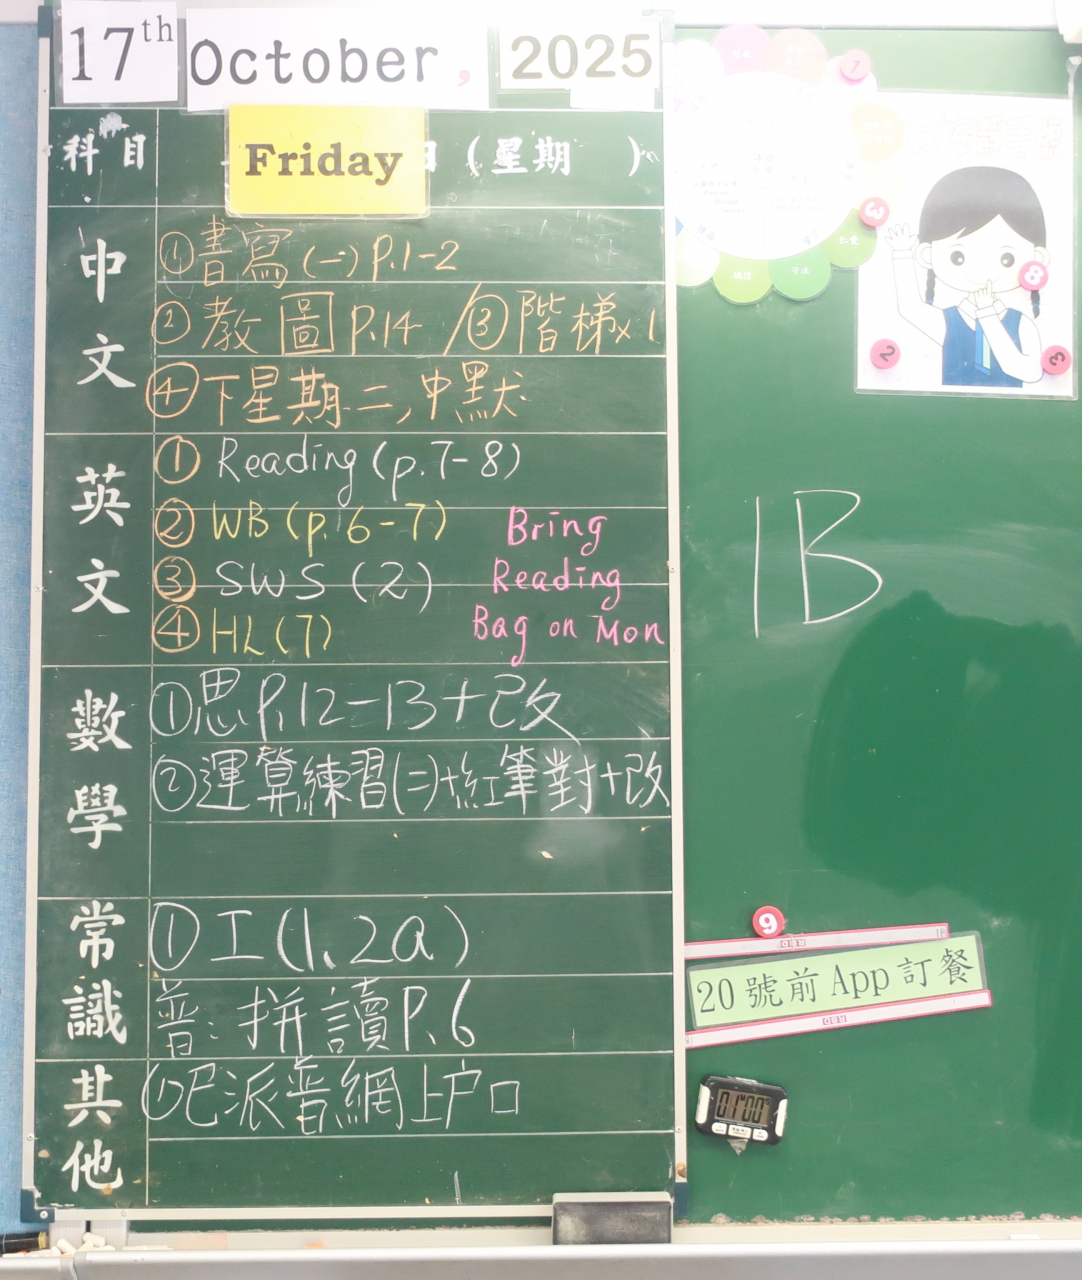 17th October, 2025
科目 Friday 日(星期 )
中文
①書寫(一)P.1-2
②教圖P.14 /③階梯x1
④下星期二,中默
英文
① Reading (p.7-8)
② WB (p.6-7)
③ SWS (2)
④ HL (7)
Bring
Reading
Bag on Mon
數學
①思P.12-13+改
②運算練習(二)+紅筆對+改
常識
①工(1、2a)
普:拼讀P.6
其他
①已派普網上户口
1B
20號前App訂餐
01'00"
仁愛
守法
誠信
1
3
8
2
3
9